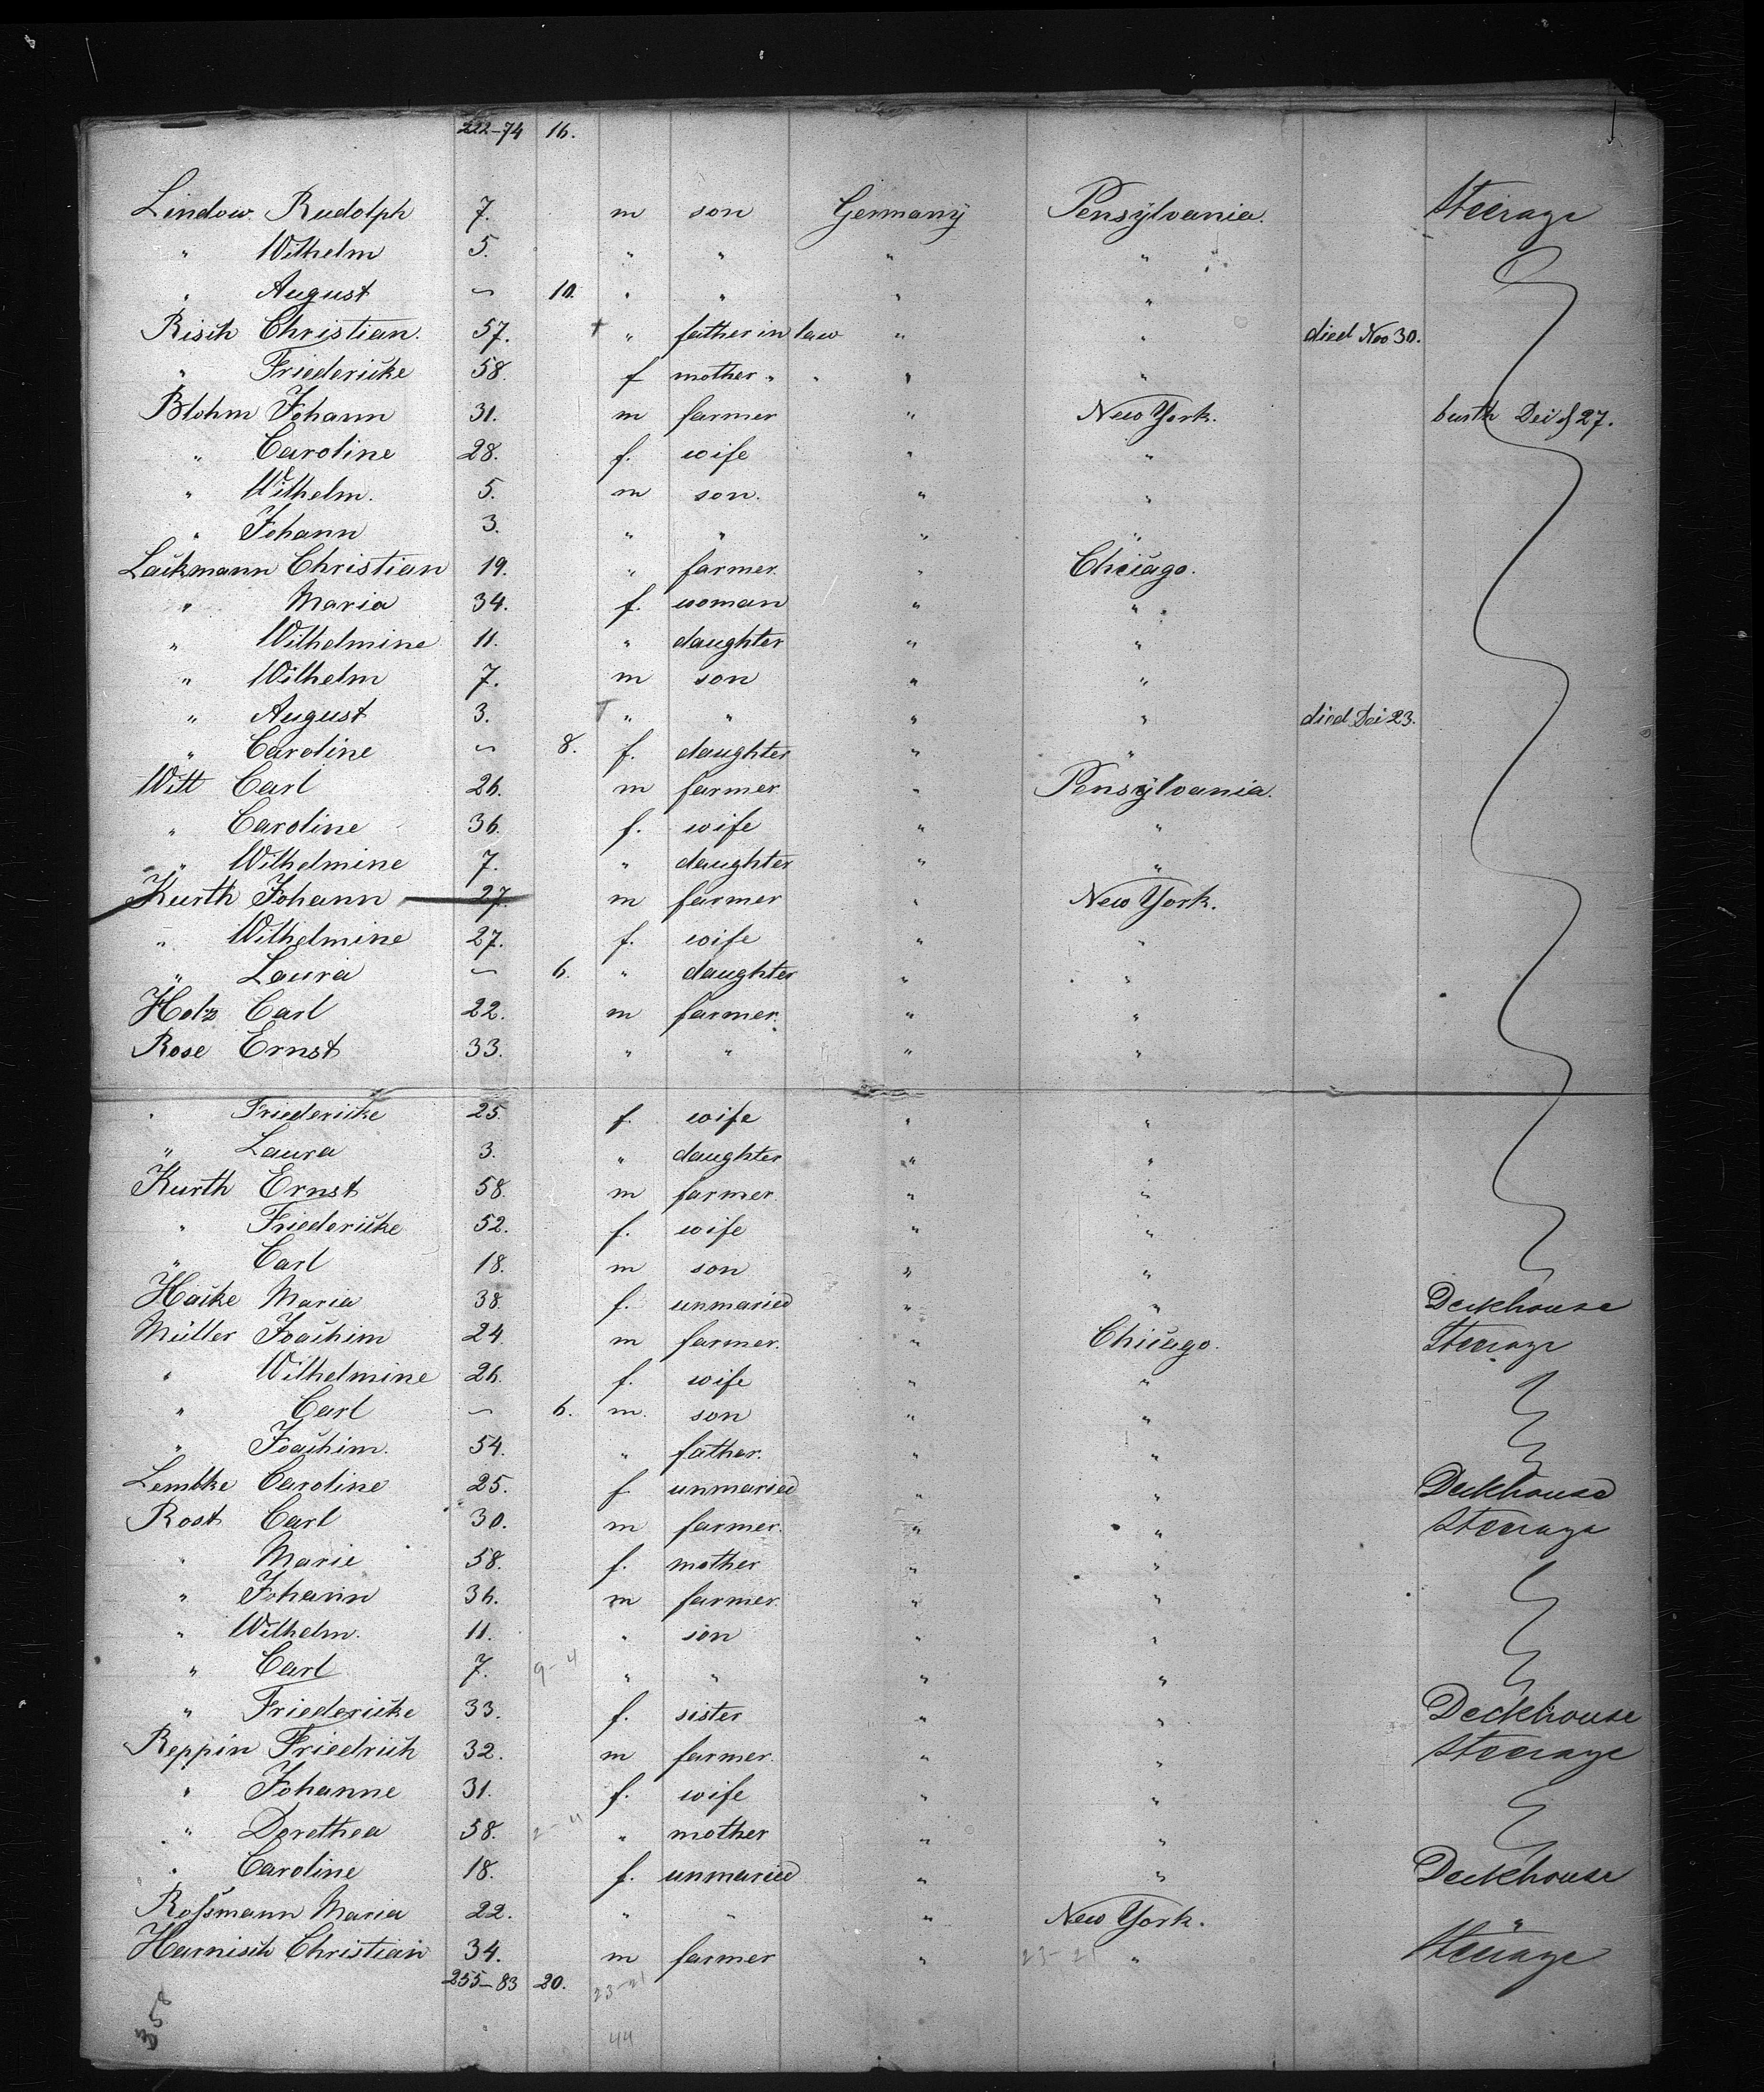 222–74 16.
Lindow Rudolph 7. m son Germany Pensylvania. Steerage
" Wilhelm 5. " " " "
" August – 10. " " " "
Risch Christian. 57. † " father in law " " died Nov 30.
" Friedericke 58. f mother " " " "
Blohm Johann 31. m farmer " New York. burth Dec 27.
" Caroline 28. f. wife " "
" Wilhelm. 5. m son. " "
" Johann 3. " " " "
Lackmann Christian 19. " farmer. " Chicago.
" Maria 34. f. woman " "
" Wilhelmine 11. " daughter " "
" Wilhelm 7. m son " "
" August 3. † " " " " died Dec 23.
" Caroline – 8. f. daughter " "
Witt Carl 26. m farmer " Pensylvania.
" Caroline 36. f. wife " "
" Wilhelmine 7. " daughter " "
Kurth Johann 27. m farmer " New York.
" Wilhelmine 27. f. wife " "
" Laura – 6. " daughter " "
Holz Carl 22. m farmer. " "
Rose Ernst 33. " " " "
" Friedericke 25. f. wife " "
" Laura 3. " daughter " "
Kurth Ernst 58. m farmer " "
" Friedericke 52. f. wife " "
" Carl 18. m son " "
Hacke Maria 38. f. unmaried " " Deckhouse
Müller Joachim 24. m farmer. " Chicago. Steerage
" Wilhelmine 26. f. wife " "
" Carl – 6. m. son " "
" Joachim. 54. " father. " "
Lembke Caroline 25. f unmaried " " Deckhouse
Rost Carl 30. m farmer. " " Steerage
" Marie 58. f. mother " "
" Johann 36. m farmer. " "
" Wilhelm. 11. " son " "
" Carl 7. 9–4 " " " "
" Friedericke 33. f. sister " " Deckhouse
Reppin Friedrich 32. m farmer. " " Steerage
" Johanne 31. f. wife " "
" Dorethea 58. 2–4 " mother " "
" Caroline 18. f. unmaried " " Deckhouse
Roſsmann Maria 22. " " " New York. "
Harnisch Christian 34. m farmer " 23–21 " Steerage
255–83 20. 23–21
358
44